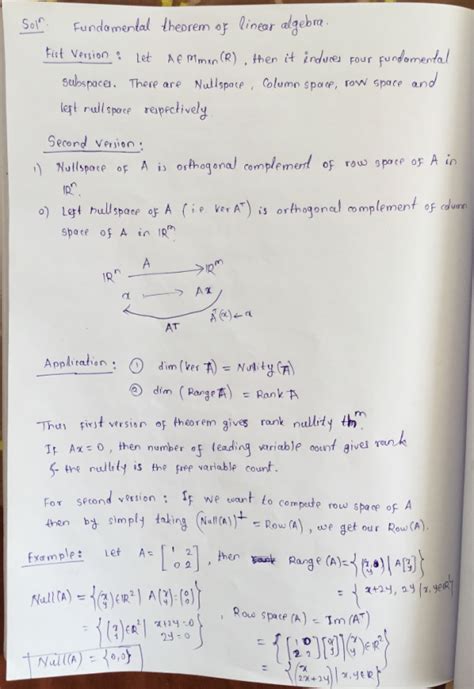 Solⁿ. Fundamental theorem of linear algebra.
First Version : Let A∈Mmxn(R), then it induces four fundamental
subspaces. There are Nullspace, Column space, row space and
left nullspace respectively.
Second version :
1) Nullspace of A is orthogonal complement of row space of A in
IRⁿ.
2) Left nullspace of A (i.e ker Aᵀ) is orthogonal complement of column
space of A in IRᵐ.
IRⁿ A → IRᵐ
x → Ax
Aᵀ
Application : ① dim(ker A) = Nullity(A)
② dim (Range A) = Rank A
Thus first version of theorem gives rank nullity thᵐ.
If Ax=0, then number of leading variable count gives rank
& the nullity is the free variable count.
For second version : If we want to compute row space of A
then by simply taking (Null(A))⊥ = Row(A), we get our Row(A).
Example : Let A = [1 2; 0 2], then Range(A) =
= {x+2y, 2y | x,y∈R}
Null(A) = {(x y)∈IR² | A(x y)=(0 0)}
Row space(A) = Im(Aᵀ)
= {(x y)∈IR² | x+2y=0 2y=0}
= {[1 0; 2 2][x y] | (x y)∈R²}
Null(A) = {0,0}
= {(x 2x+2y) | x,y∈R}